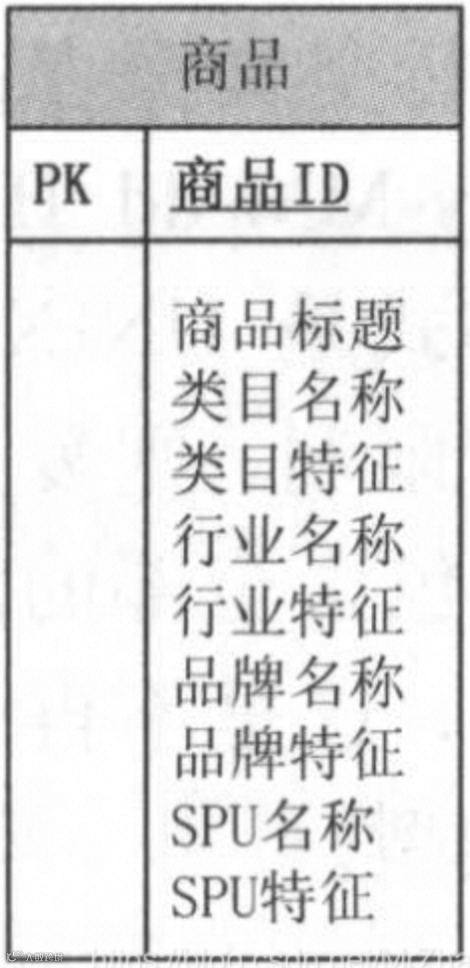 商品
PK 商品ID
商品标题
类目名称
类目特征
行业名称
行业特征
品牌名称
品牌特征
SPU名称
SPU特征